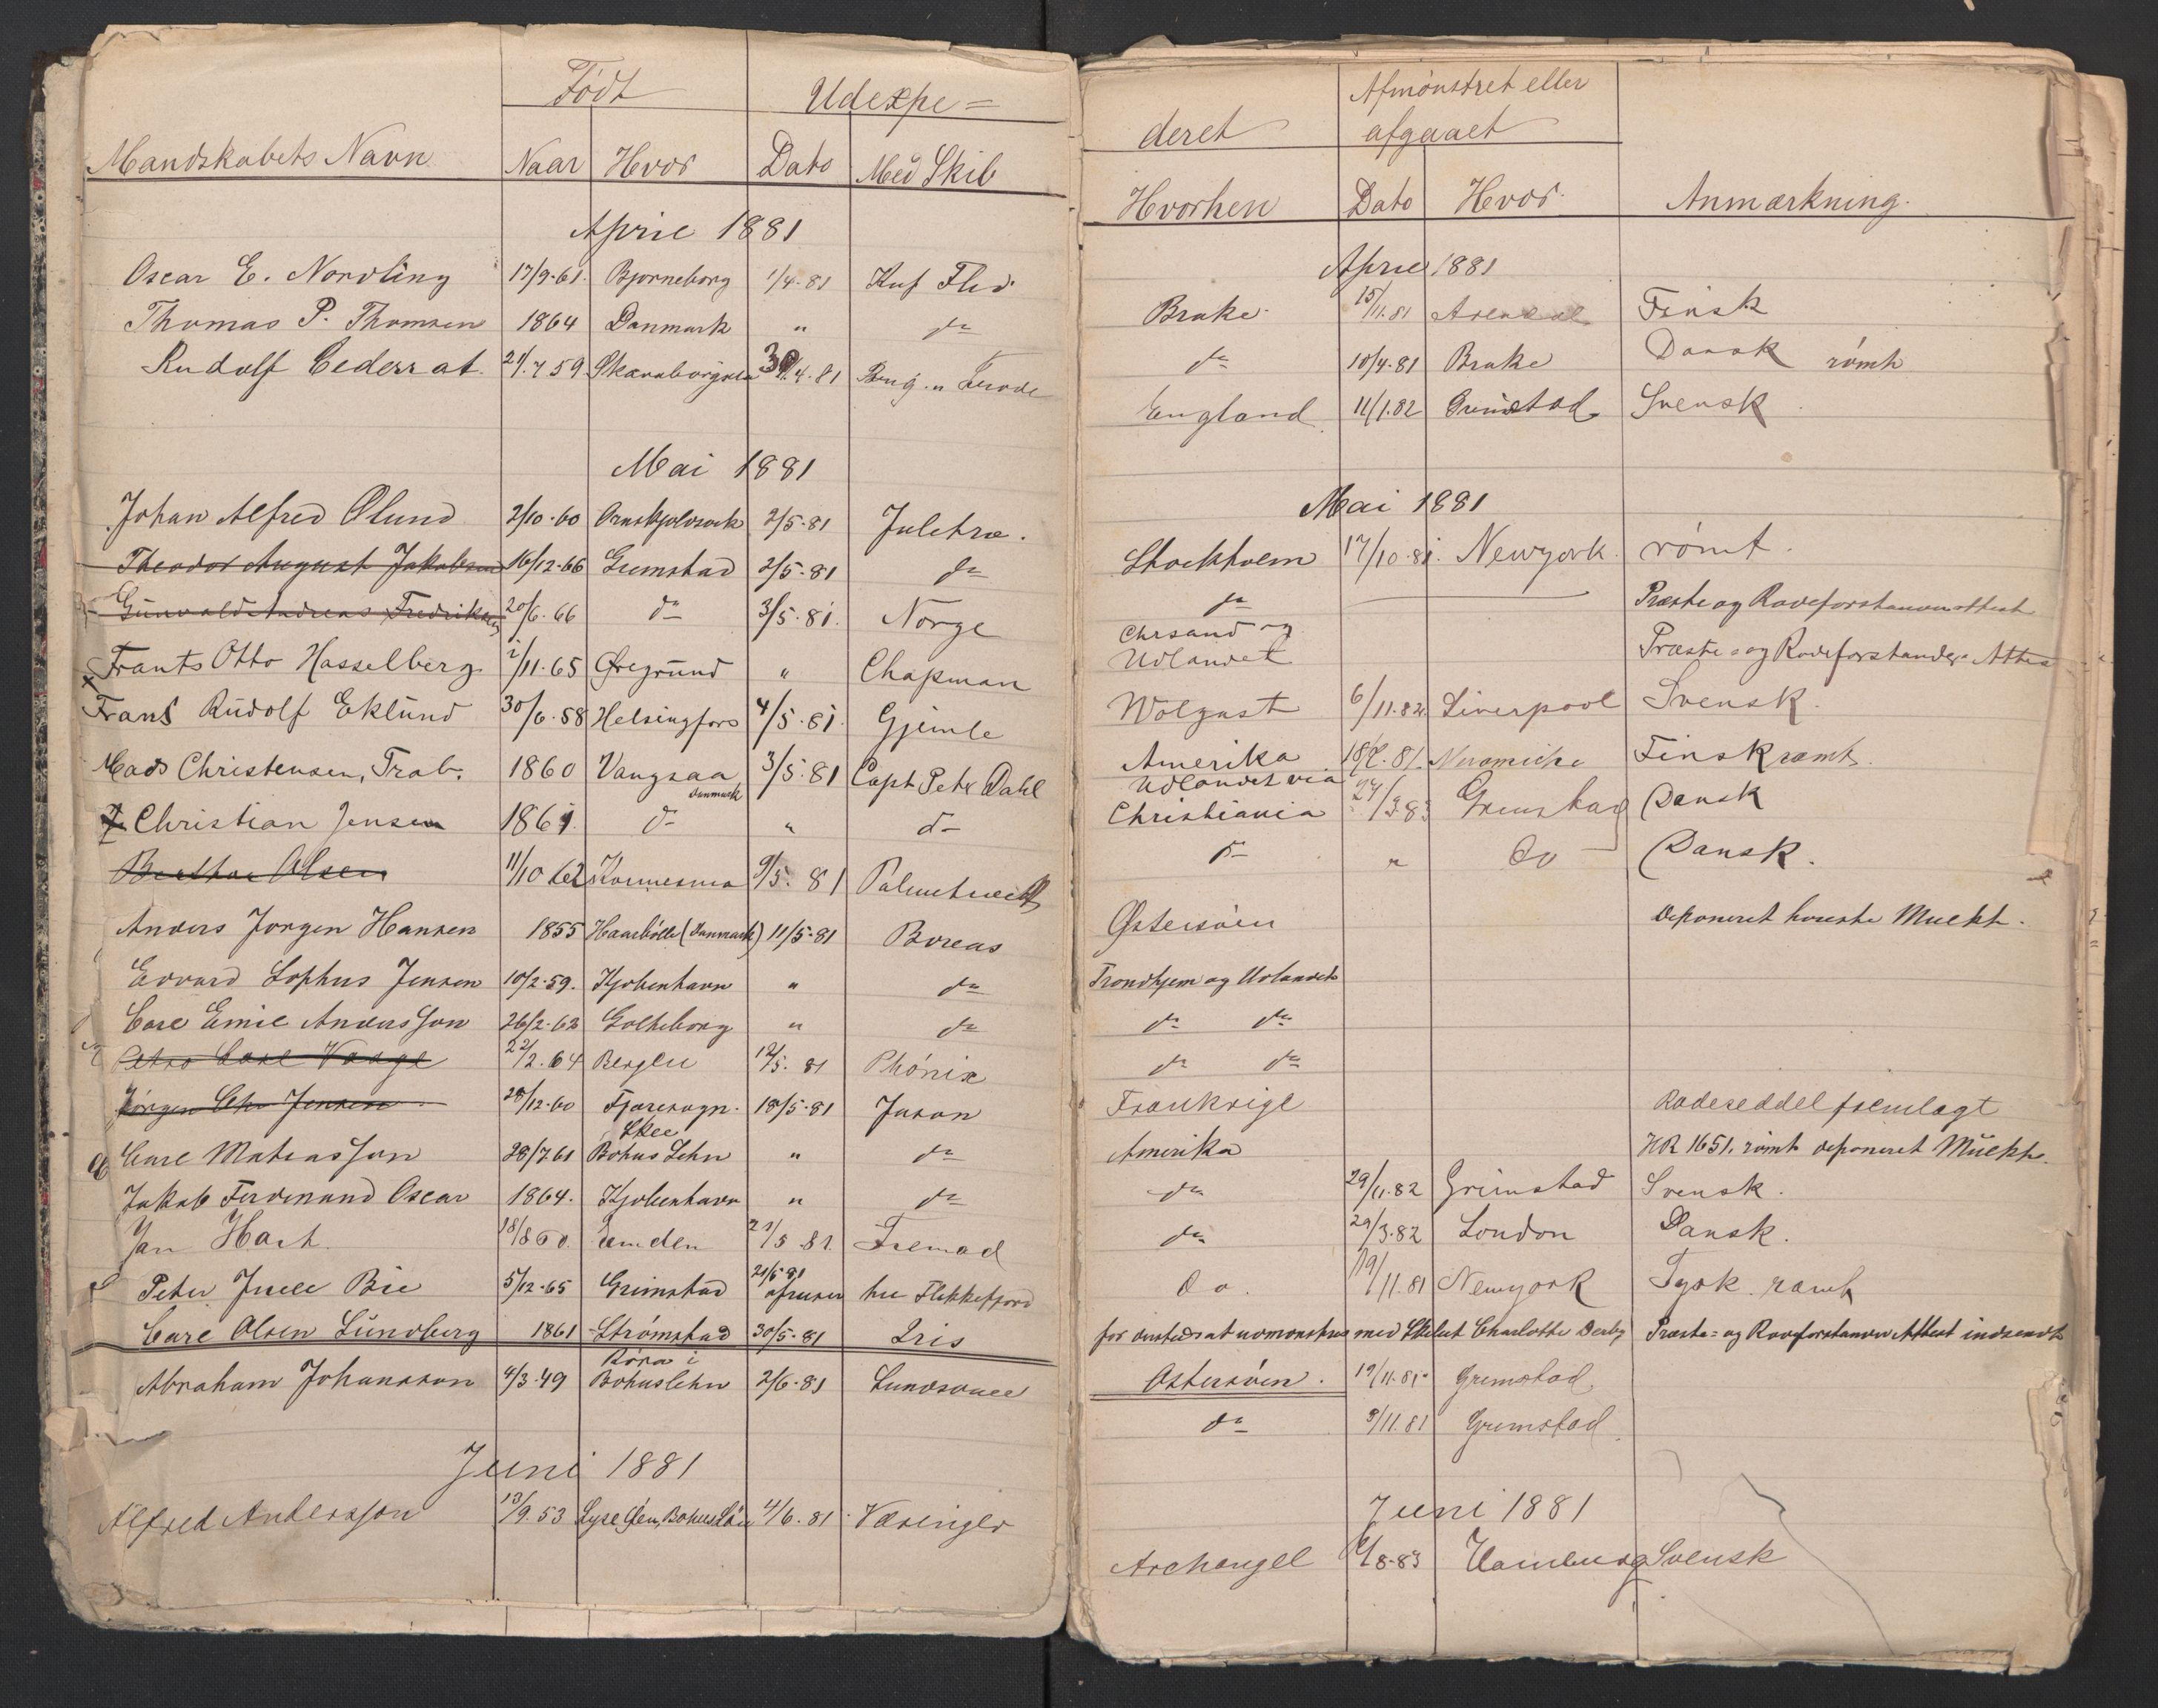 Født
Udexpe=
Mandskabets Navn Naar Hvor Dato Med Skib
April 1881
Oscar E. Nordling 17/9-61. Bjørneborg 1/4-81 Kuf Flid
Thomas P. Thomsen 1864 Danmark " do
Rudolf Cederrat. 21/.7 59 30/.4.81 Brig
Mai 1881
Johan Alfred Ølund 2/10-60 2/5-81 Juletræ.
Theodor August Jakobsen 16/12-66 Grimstad 2/5-81 do
Gunvald Andreas Fredriksen 20/6.66 do 3/5.81. Norge
Frants Otto Hasselberg 2/11.65 Øregrund " Chapman
Frans Rudolf Eklund 30/6.58 Helsingfors 4/5.81. Gjimle
Mads Christensen, Trab. 1860 Vangsaa 3/5.81 Capt Peter Dahl
Danmark
Christian Jensen 1861. do " do
Olsen 11/10 62 9/5.81
Anders Jørgen Hansen 1855 Haarbølle (Danmark) 11/5-81 Boreas
Edvard Sophus Jensen 10/2-59. Kjøbenhavn " do
Carl Emil Andersson 26/2-62 Gøtheborg " do
Petro Carl Vaage 22/2.64 Bergen 12/5.81 Phønix
Jørgen Chr Jensen 28/12-60 Fjæresogn. 18/5-81 Jason
Skee
Carl Matiasson 28/7.61 Bohus Lehn " do
Jakob Ferdinand Oscar 1864. Kjøbenhavn " do
Jan Hach 18/8 60. Emden 21/5.81. Fremad
Peter Juell Bie 5/12-65 Grimstad 21/5-81 afreiser til Flekkefjord
Carl Olsen Lundberg 1861 Strømstad 30/5-81 Iris
Røra i
Abraham Johansson 4/3-49 Bohuslehn 2/6-81 Sundsvall
Juni 1881
Alfred Andersson 13/9.53 Lyse Øen, Bohuslän 4/6.81. Væringer
deret
Afmønstret eller
afgaaet
Hvorhen Dato Hvor. Anmærkning.
April 1881
Brake. 15/11.81 Arendal Finsk
do 10/4-81 Brake Dansk rømt
England 11/1.82 Grimstad Svensk
Mai 1881
Stockholm 17/10.81. Newyork. rømt.
do Præste og Rodeforstanderattest
Chrsand og
Udlandet Præste- og Rodeforstander Attest
Wolgast 6/11.82. Liverpool Svensk.
Amerika 81. Finsk rømt.
Udlandet via
Christiania 24/3.83 Grimstad Dansk
do " do Dansk.
Østersøen Deponeret
Trondhjem og Udlandet
do do
do do
Frankrige Rodeseddel fremlagt
Amerika NR 1651. rømt deponeret
do 29/11.82 Grimstad Svensk.
do 29/3.82 London Dansk.
Do. 19/11.81 Newyork Tysk. rømt
for at udmønstres med Skibet Charlotte Derby Præste= og Rodeforstander Attest indsendt
Østersøen. 19/11.81. Grimstad
do 9/11.81 Grimstad.
Juni 1881
Archangel /8-83 Hamburg Svensk